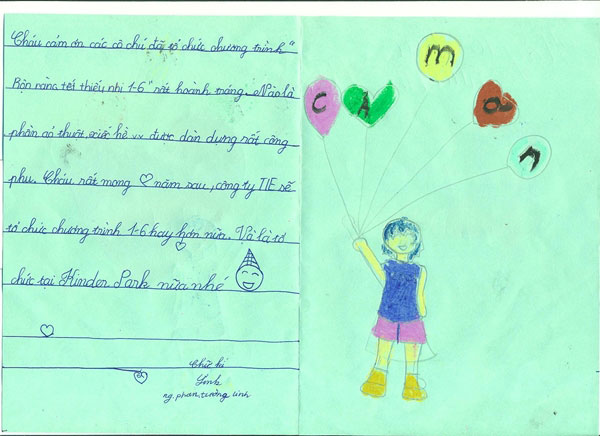 Cháu cám ơn các cô chú đã tổ chức chương trình "
Rộn ràng tết thiếu nhi 1-6" rất hoành tráng. Nào là
phần ảo thuật, xiếc hề v.v được dàn dựng rất công
phu. Cháu rất mong năm sau, công ty TIE sẽ
tổ chức chương trình 1-6 hay hơn nữa. Và là tổ
chức tại Kinder Park nữa nhé
Chữ kí
Linh
ng.phan.tường linh
CẢM ƠN